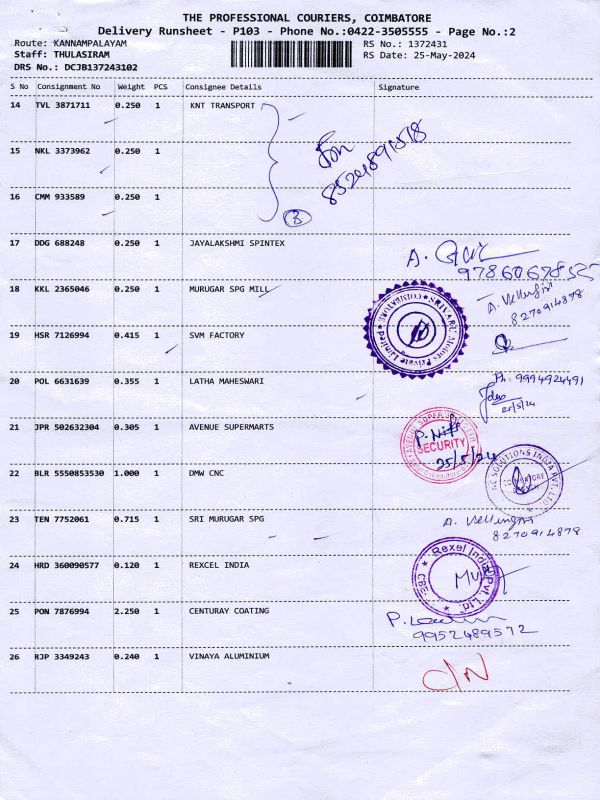 THE PROFESSIONAL COURIERS, COIMBATORE
Delivery Runsheet - P103 - Phone No.:0422-3505555 - Page No.:2
Route: KANNAMPALAYAM RS No.: 1372431
Staff: THULASIRAM RS Date: 25-May-2024
DRS No.: DCJB137243102
S No Consignment No Weight PCS Consignee Details Signature
14 TVL 3871711 0.250 1 KNT TRANSPORT
15 NKL 3373962 0.250 1
8524891518
16 CMM 933589 0.250 1
3
17 DDG 688248 0.250 1 JAYALAKSHMI SPINTEX
A.
18 KKL 2365046 0.250 1 MURUGAR SPG MILL
A. Vellingiri
8270914878
19 HSR 7126994 0.415 1 SVM FACTORY
Private Limited
COIMBATORE
20 POL 6631639 0.355 1 LATHA MAHESWARI
Ph: 9994924491
25/5/24
21 JPR 502632304 0.305 1 AVENUE SUPERMARTS
SECURITY
25/5/24
22 BLR 5550853530 1.000 1 DMW CNC
NE SOLUTIONS INDIA PVT. LTD
COIMBATORE
23 TEN 7752061 0.715 1 SRI MURUGAR SPG
A. Vellingiri
8270914878
24 HRD 360090577 0.120 1 REXCEL INDIA
Rexel India Pvt. Ltd.
CBE
25 PON 7876994 2.250 1 CENTURAY COATING
P.
9952489572
26 RJP 3349243 0.240 1 VINAYA ALUMINIUM